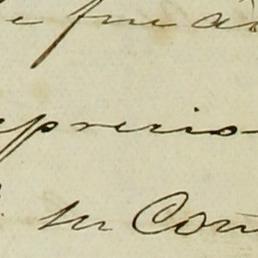 e fue a
aprecio
su Con